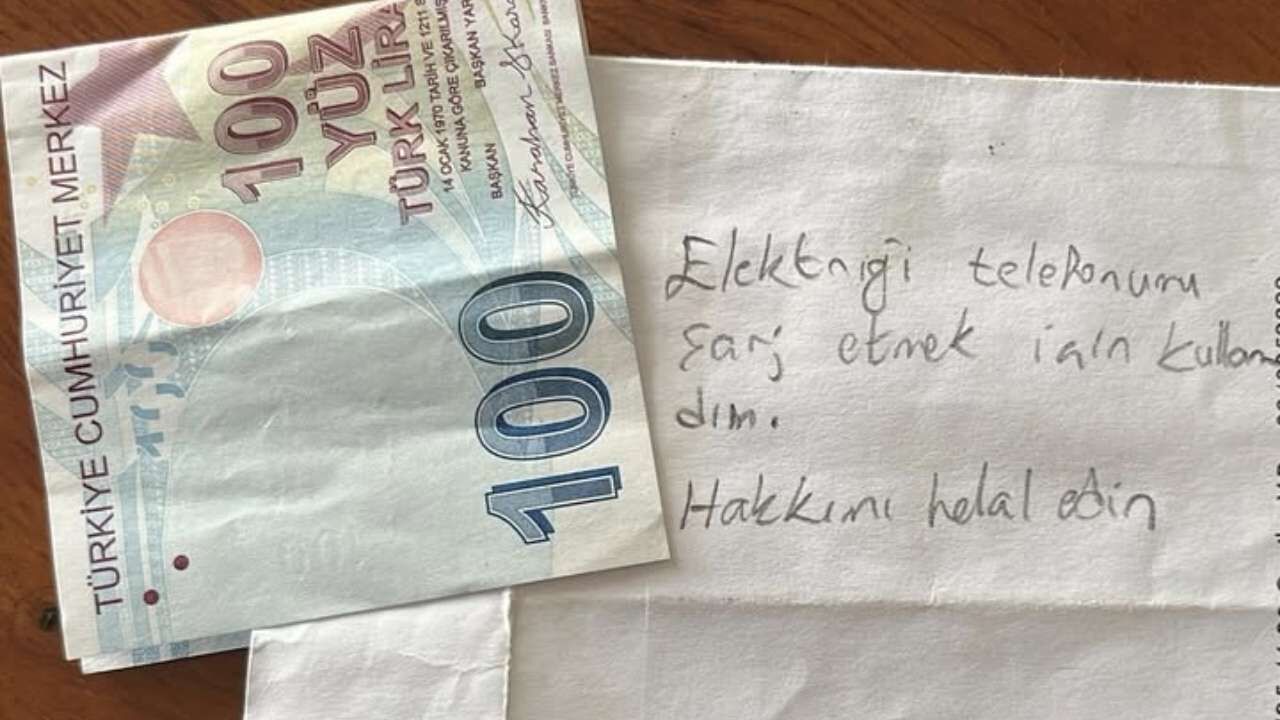 TÜRKİYE CUMHURİYET MERKEZ
100
YÜZ
TÜRK LİRA
14 OCAK 1970 TARİH VE 1211 S
KANUNA GÖRE ÇIKARILMIŞ
BAŞKAN BAŞKAN YAR
TÜRKİYE CUMHURİYET MERKEZ BANKASI
100
100
Elektriği telefonumu
şarj etmek için kullan
dım.
Hakkını helal edin